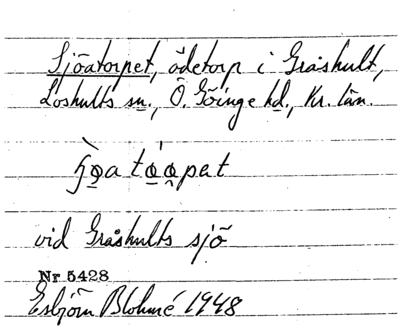 Sjöatorpet, ödetorp i Gråshult,
Loshults sn., Ö. Göinge hd., Kr. län.
vid Gråshults sjö
Nr. 5428
Esbjörn Blohmé 1948